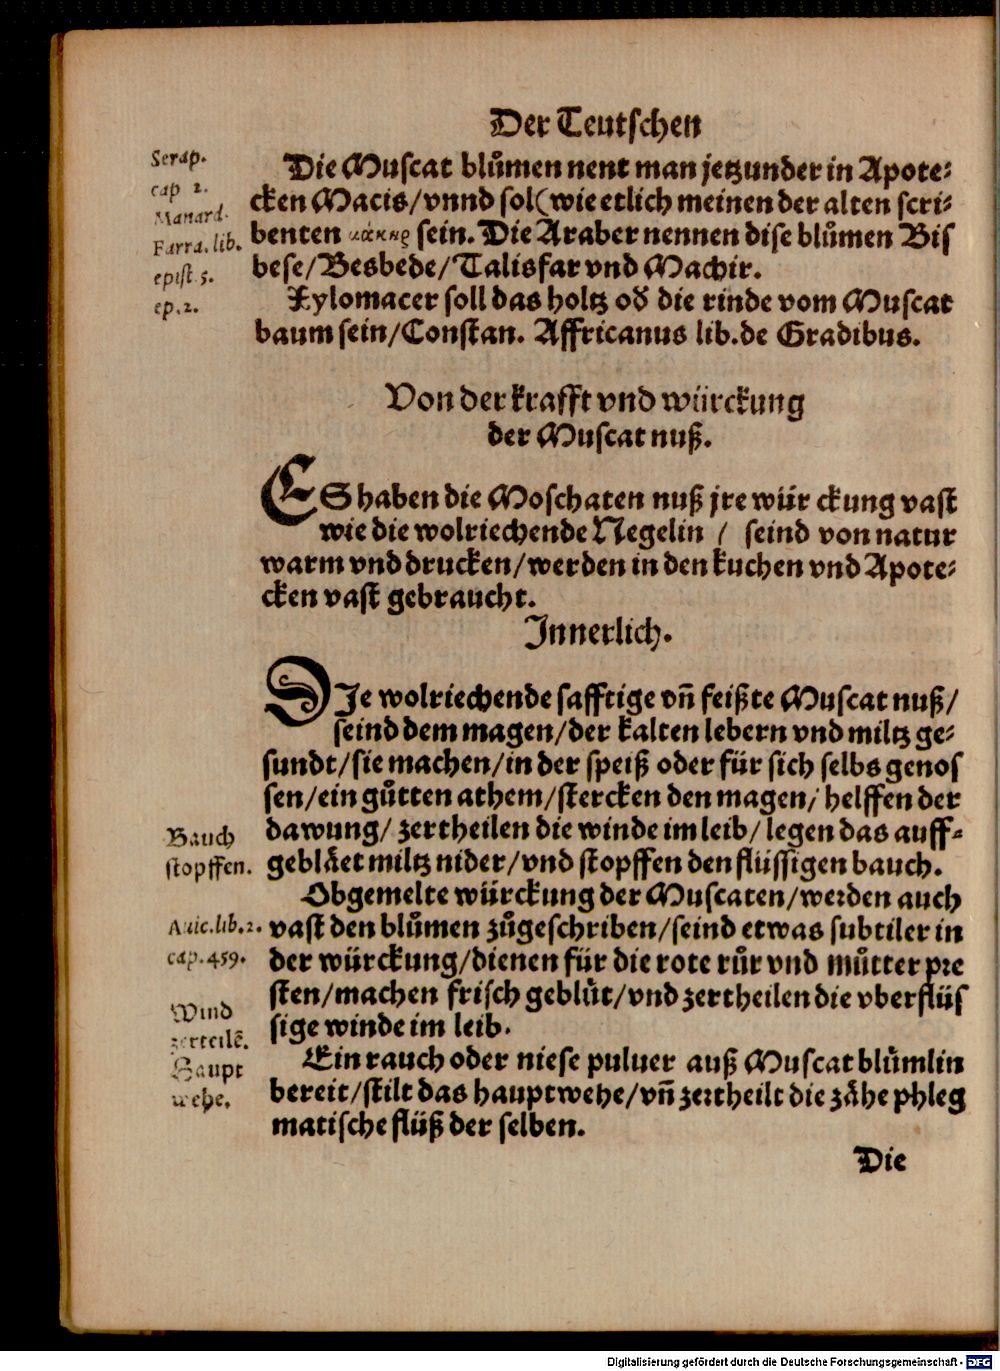 Der Teutschen
Serap.
cap 2.
Manard.
Farra. lib.
epist 5.
ep. 2.
Die Muscat blůmen nent man jetzunder in Apote⸗
cken Macis/ vnnd sol (wie etlich meinen der alten scri⸗
benten μάκηρ sein. Die Araber nennen dise blůmen Bis
bese/ Besbede/ Talisfar vnd Machir.
Xylomacer soll das holtz oď die rinde vom Muscat
baum sein/ Constan. Affricanus lib. de Gradibus.
Von der krafft vnd würckung
der Muscat nuß.
ES haben die Moschaten nuß jre wür ckung vast
wie die wolriechende Negelin / seind von natur
warm vnd drucken/ werden in den kuchen vnd Apote⸗
cken vast gebraucht.
Innerlich.
DIe wolriechende safftige vñ feißte Muscat nuß/
seind dem magen/ der kalten lebern vnd miltz ge⸗
sundt/ sie machen/ in der speiß oder für sich selbs genos
sen/ ein gůtten athem/ stercken den magen/ helffen der
dawung/ zertheilen die winde im leib/ legen das auff⸗
gebläet miltz nider/ vnd stopffen den flüssigen bauch.
Bauch
stopffen.
Obgemelte würckung der Muscaten/ werden auch
vast den blůmen zůgeschriben/ seind etwas subtiler in
der würckung/ dienen für die rote růr vnd můtter pre
sten/ machen frisch geblůt/ vnd zertheilen die vberflüs
sige winde im leib.
Auic. lib. 2.
cap. 459.
Wind
zerteilẽ.
Ein rauch oder niese puluer auß Muscat blůmlin
bereit/ stilt das hauptwehe/ vñ zertheilt die zähe phleg
matische flüß der selben.
Haupt
wehe.
Die
Digitalisierung gefördert durch die Deutsche Forschungsgemeinschaft - DFG